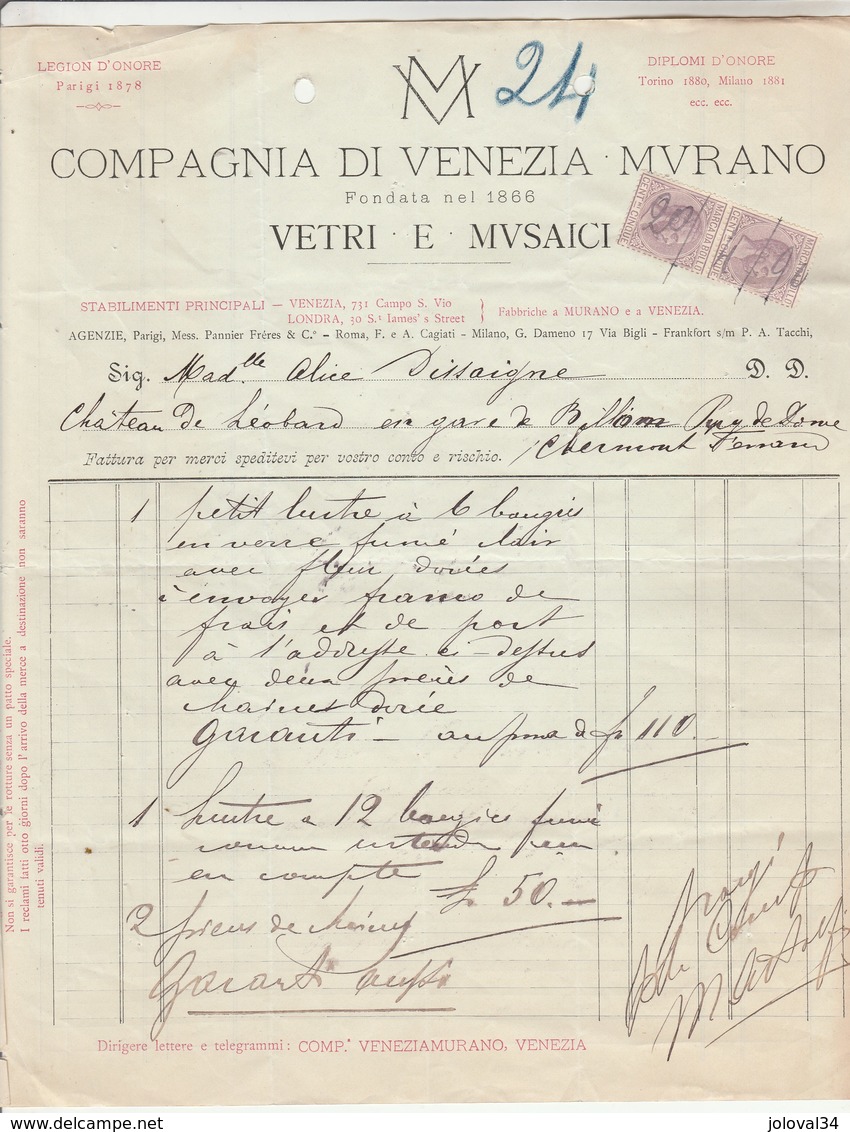 LEGION D'ONORE
Parigi 1878
VM
24
DIPLOMI D'ONORE
Torino 1880, Milano 1881
ecc. ecc.
COMPAGNIA DI VENEZIA · MVRANO
Fondata nel 1866
VETRI · E · MVSAICI
CENT.MI CINQUE
MARCA DA BOLLO
CENT.MI CINQUE
STABILIMENTI PRINCIPALI — VENEZIA, 731 Campo S. Vio
LONDRA, 30 S.t Iames's Street
Fabbriche a MURANO e a VENEZIA.
AGENZIE, Parigi, Mess. Pannier Fréres & C.o – Roma, F. e A. Cagiati – Milano, G. Dameno 17 Via Bigli – Frankfort s/m P. A. Tacchi,
Sig. Mad.lle Alice Dissaigne D. D.
Château de Léobard en gare de Billom Puy de Dome
Clermont Ferrand
Fattura per merci speditevi per vostro conto e rischio.
1 petit lustre à 6 bougies
en verre fumé clair
avec fleur dorées
à envoyer franco de
frais et de port
à l'addresse ci-dessus
avec deux pièces de
dorée
Garanti — au prix de fr 110.—
1 Lustre a 12 bougies fumé
en compte fr 50.—
2 pieces de
Garanti aussi
Non si garantisce per le rotture senza un patto speciale.
I reclami fatti otto giorni dopo l'arrivo della merce a destinazione non saranno
tenuti validi.
Dirigere lettere e telegrammi: COMP.a VENEZIAMURANO, VENEZIA
www.delcampe.net
joloval34